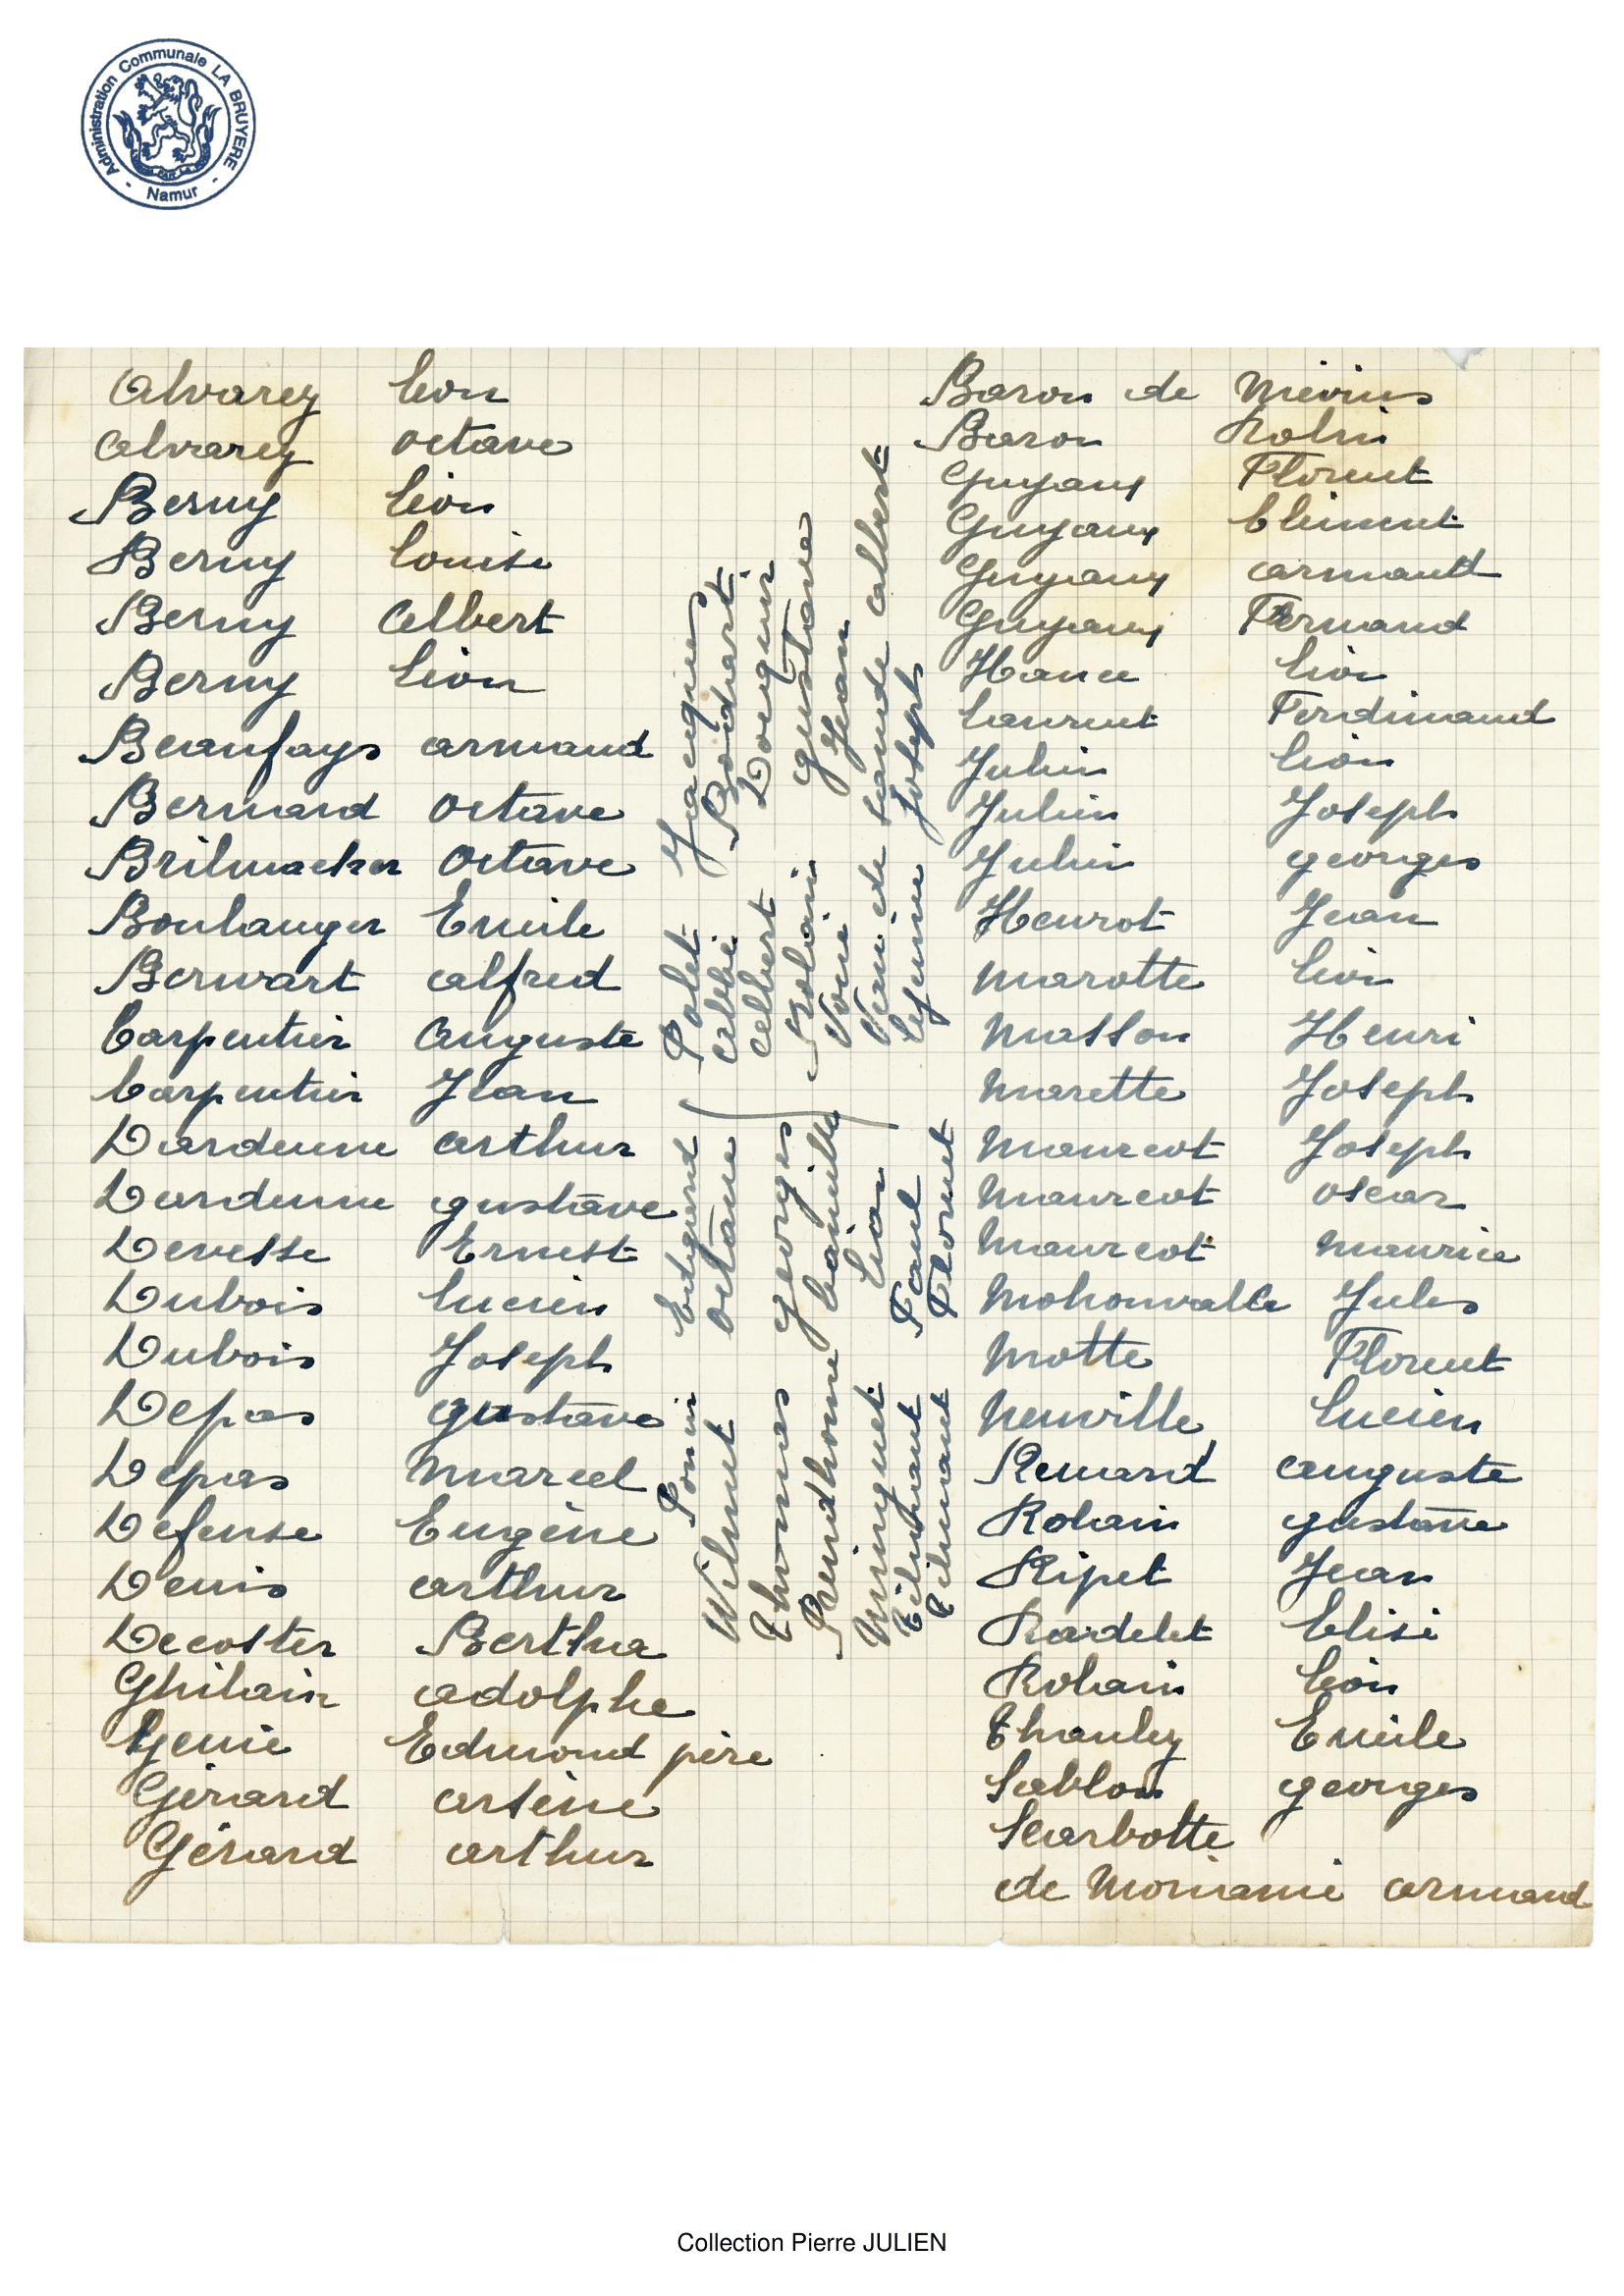 Administration Communale LA BRUYERE
- Namur -
Alvarez Léon
Alvarez Octave
Berny Léon
Berny Louise
Berny Albert
Berny Léon
Beaufays Armand
Bernard Octave
Brilmacker Octave
Boulanger Emile
Berwart Alfred
Carpentier Auguste
Carpentier Jean
Dardenne Arthur
Dardenne Gustave
Devesse Ernest
Dubois Lucien
Dubois Joseph
Depas Gustave
Depas Marcel
Defense Eugène
Denis Arthur
Decoster Bertha
Ghilain Adolphe
Genie Edmond père
Gérard Arsène
Gérard Arthur
Polet Jacques
Abbé Bodart
Albert Douquin
Rolain Gustave
Jean
Van de Lande Albert
Lejeune Joseph
Wilmet Octave
Thomas Georges
Prendhomme Camille
Minguet Léon
Tilmant Paul
Tilmant Florent
Baron de Mévius
Baron Robin
Guyaux Florent
Guyaux Clément
Guyaux Armand
Guyaux Fernand
Hance Léon
Laurent Ferdinand
Julien Léon
Julien Joseph
Julien Georges
Henrot Jean
Marotte Léon
Masson Henri
Marette Joseph
Maurcot Joseph
Maurcot Oscar
Maurcot Maurice
Mohonvalle Jules
Motte Florent
Neuville Lucien
Renard Auguste
Rolain Gustave
Ripet Jean
Radelet Elisé
Rolain Léon
Emile
Sablon Georges
Scarbotte
de Moriamé Armand
Collection Pierre JULIEN